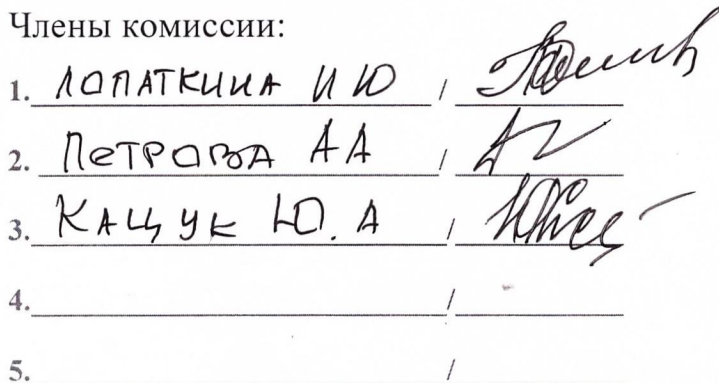 Члены комиссии:
1. ЛОПАТКИНА И Ю /
2. ПЕТРОВА А А /
3. КАЩУК Ю. А /
4. /
5. /